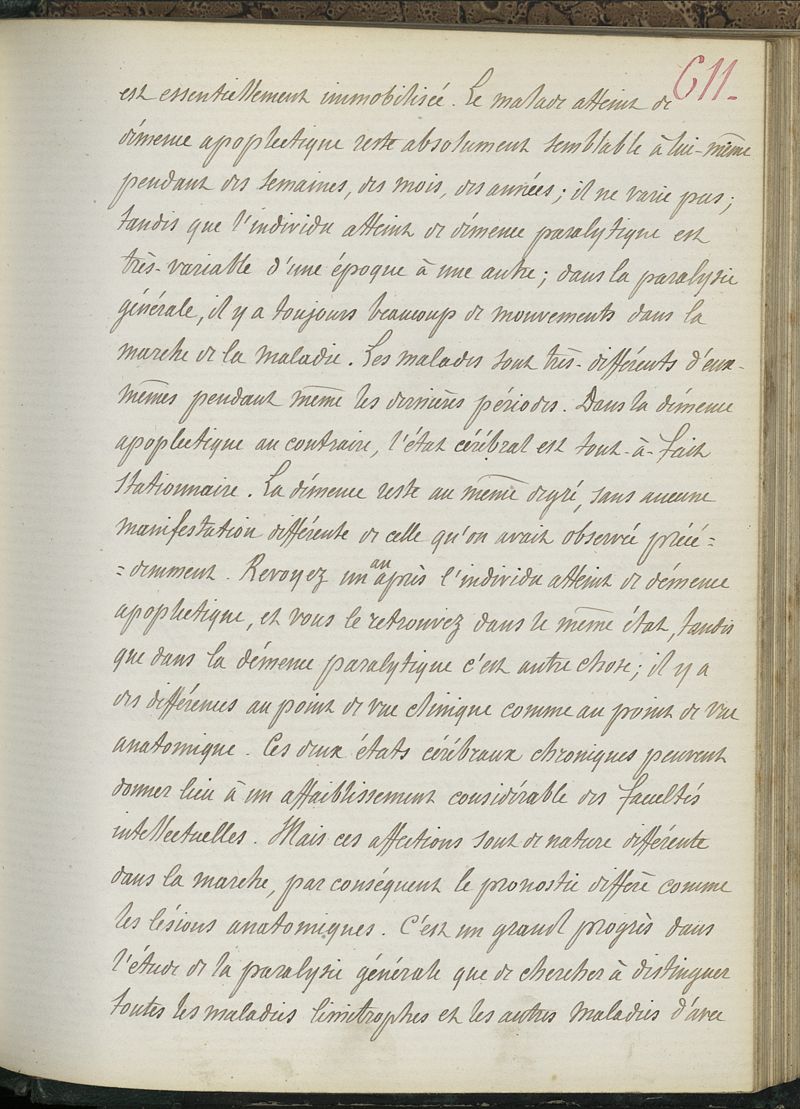 611_
est essentiellement immobilisée. Le malade atteint de
démence apoplectique reste absolument semblable à lui-même
pendant des semaines, des mois, des années; il ne varie pas;
tandis que l'individu atteint de démence paralytique est
très-variable d'une époque à une autre; dans la paralysie
générale, il y a toujours beaucoup de mouvements dans la
marche de la maladie. Les malades sont très-différents d'eux-
mêmes pendant même les dernières périodes. Dans la démence
apoplectique au contraire, l'état cérébral est tout-à-fait
stationnaire. La démence reste au même degré, sans aucune
manifestation différente de celle qu'on avait observée précé=
=demment. Revoyez un an après l'individu atteint de démence
apoplectique, et vous le retrouvez dans le même état, tandis
que dans la démence paralytique c'est autre chose; il y a
des différences au point de vue clinique comme au point de vue
anatomique. Ces deux états cérébraux chroniques peuvent
donner lieu à un affaiblissement considérable des facultés
intellectuelles. Mais ces affections sont de nature différente
dans la marche, par conséquent le pronostic diffère comme
les lésions anatomiques. C'est un grand progrès dans
l'étude de la paralysie générale que de chercher à distinguer
toutes les maladies limitrophes et les autres maladies d'avec